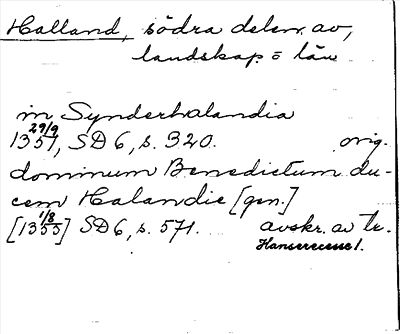 Halland, södra delen av,
landskap o län
in Synderhalandia
29/9
1351, SD 6, s. 320. orig.
dominum Benedictum du-
cem Halandie [gen.]
1/8
[1355] SD 6, s. 571. avskr. av tr.
Hanserecesse 1.